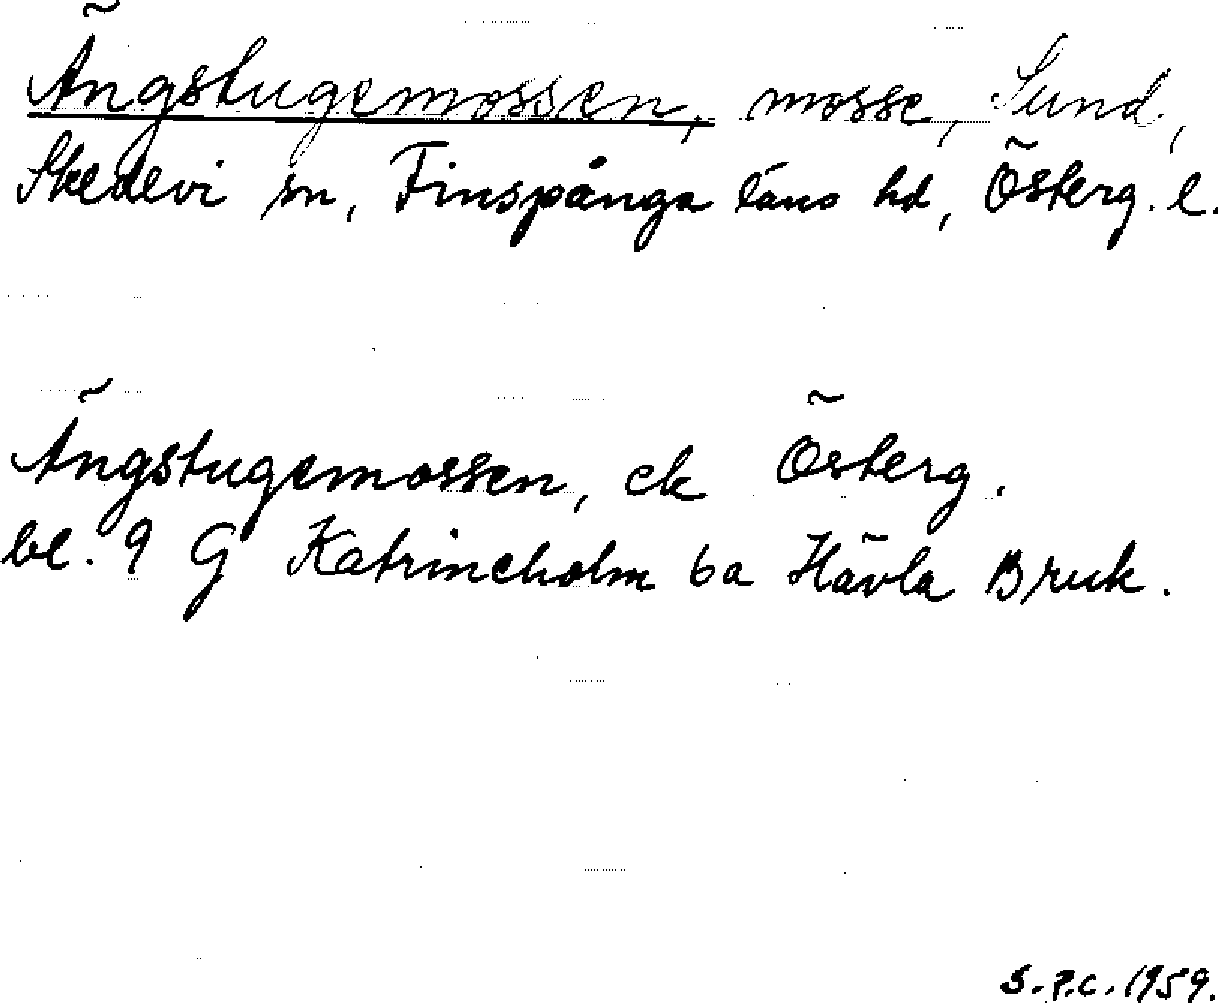 Ängstugemossen, mosse, Sund,
Skedevi sn, Finspånga läns hd, Österg. l.
Ängstugemossen, ek Österg.
bl. 9 G Katrineholm 6a Hävla Bruk.
S.P.C. 1959.